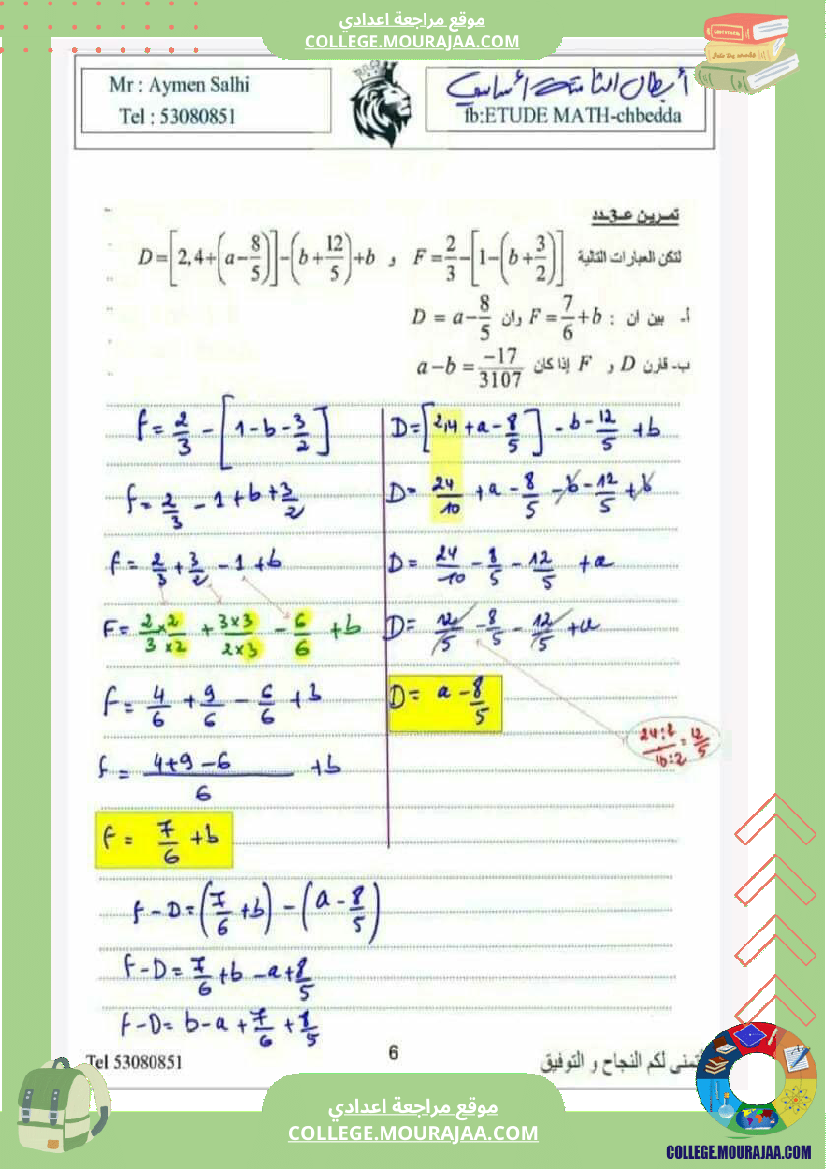 موقع مراجعة اعدادي
COLLEGE.MOURAJAA.COM
Mr : Aymen Salhi
Tel : 53080851
أبطال الثامنة أساسي
fb:ETUDE MATH-chbedda
تمرين عدد
لتكن العبارات التالية F = 2/3 - [1 - (b + 3/2)] و D = [2,4 + (a - 8/5)] - (b + 12/5) + b
أ- بين ان : F = 7/6 + b وان D = a - 8/5
ب- قارن D و F إذا كان a - b = -17/3107
F = 2/3 - [1 - b - 3/2]
F = 2/3 - 1 + b + 3/2
F = 2/3 + 3/2 - 1 + b
F = 2×2/3×2 + 3×3/2×3 - 6/6 + b
F = 4/6 + 9/6 - 6/6 + b
F = 4+9-6/6 + b
F = 7/6 + b
D = [2,4 + a - 8/5] - b - 12/5 + b
D = 24/10 + a - 8/5 - b - 12/5 + b
D = 24/10 - 8/5 - 12/5 + a
D = 12/5 - 8/5 - 12/5 + a
D = a - 8/5
24:2/10:2 = 12/5
F - D = (7/6 + b) - (a - 8/5)
F - D = 7/6 + b - a + 8/5
F - D = b - a + 7/6 + 8/5
Tel 53080851
6
أتمنى لكم النجاح و التوفيق
موقع مراجعة اعدادي
COLLEGE.MOURAJAA.COM
COLLEGE.MOURAJAA.COM